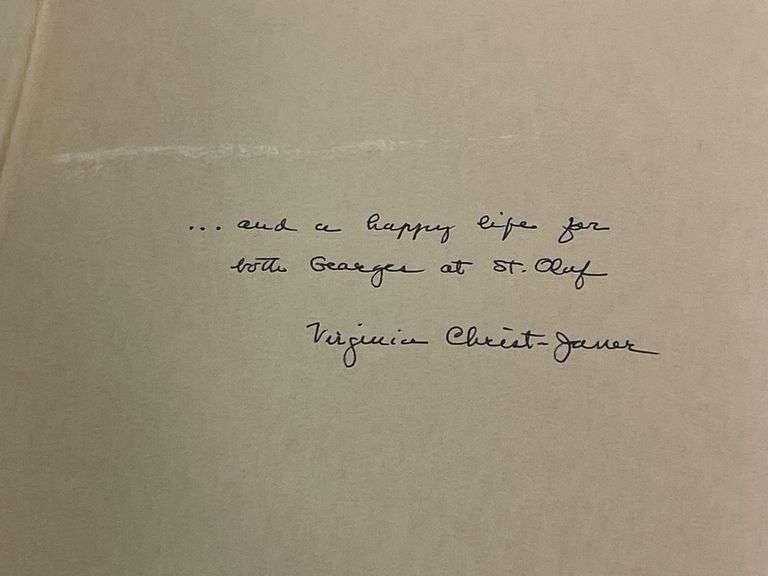 ... and a happy life for
both Georges at St. Olaf
Virginia Christ-Janer